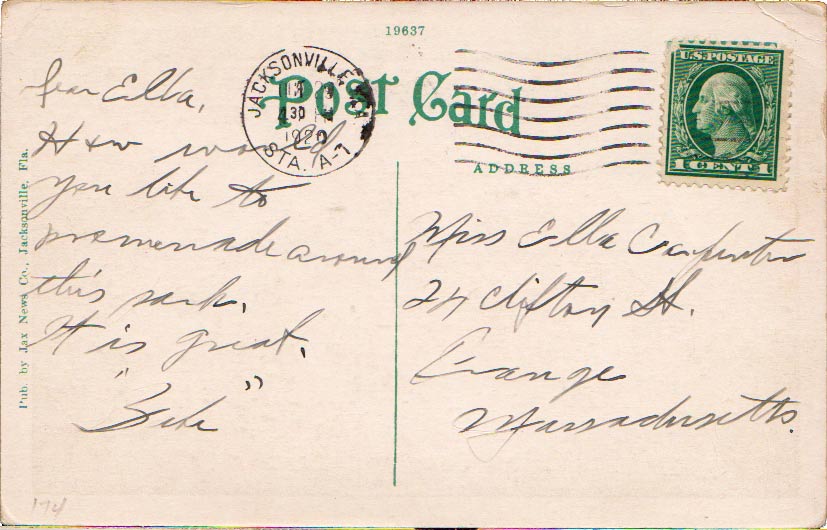 19637
Post Card
JACKSONVILLE
430
1920
STA. A-1
U.S. POSTAGE
1 CENT 1
ADDRESS
Dear Ella,
How would
you like to
promenade around
this park.
It is great,
"Zeke"
Miss Ella Carpenter
24 Clifton St.
Orange
Massachusetts.
Pub. by Jax News Co., Jacksonville, Fla.
174